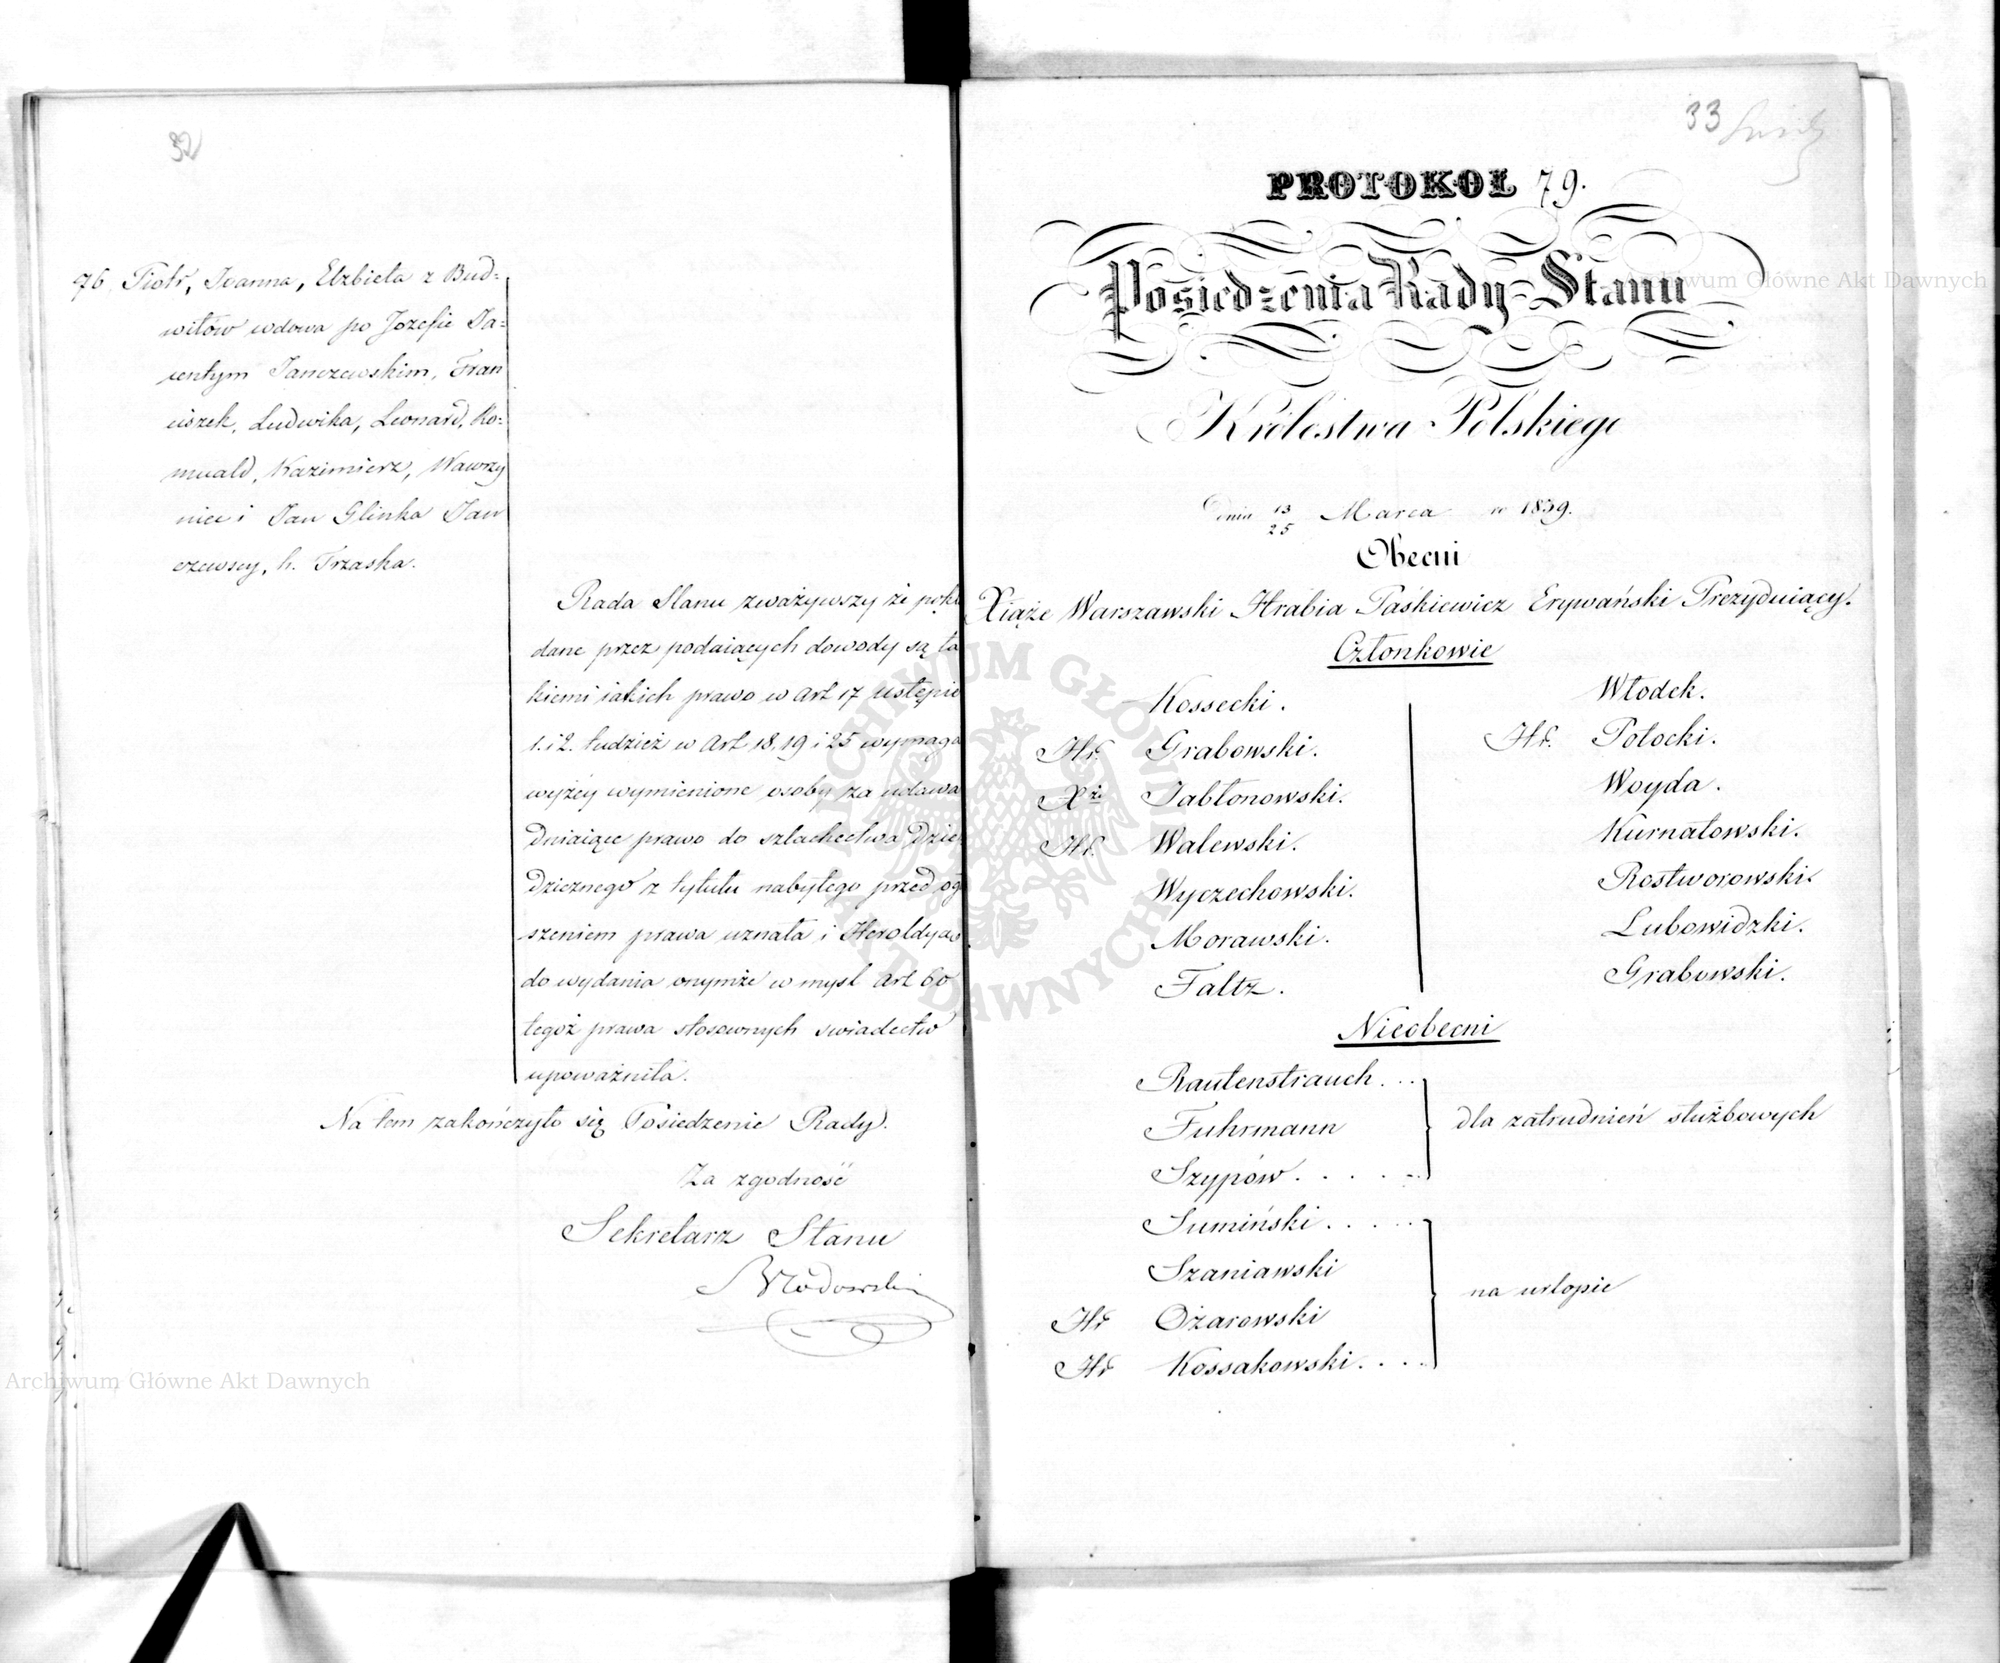 32
76 Piotr, Joanna, Elzbieta z Bud-
witów wdowa po Jozefie Ja-
centym Janczewskim, Fran
ciszek, Ludwika, Leonard, Ro-
muald, Kazimierz, Wawrzy
niec i Jan Glinka Jan
czewscy, h. Trzaska.
Rada Stanu zważywszy że pokła
dane przez podaiących dowody są ta
kiemi iakich prawo w art 17 ustępie
1. i 2. tudzież w Art 18, 19 i 25 wymaga
wyżéy wymienione osoby za udawa
dniaiące prawo do szlachectwa dzie
dzicznego z tytułu nabytego przed ogł
szeniem prawa uznała i Heroldyą
do wydania onymże w mysl art 60
tegoż prawa stosownych swiadectw
upoważniła.
Na tem zakończyło się Posiedzenie Rady.
Za zgodność
Sekretarz Stanu
33
PROTOKOŁ 79.
Posiedzenia Rady Stanu
Królestwa Polskiego
Dnia 13/25 Marca r. 1839.
Obecni
Xiąże Warszawski Hrabia Paśkiewicz Erywański Prezyduiący.
Członkowie
Kossecki.
Hr. Grabowski.
Xże Jabłonowski.
Hr. Walewski.
Wyczechowski.
Morawski.
Faltz.
Włodek.
Hr. Potocki.
Woyda.
Kurnatowski.
Rostworowski.
Lubowidzki.
Grabowski.
Nieobecni
Rautenstrauch . . .
Fuhrmann
Szypów . . . . .
dla zatrudnień służbowych
Sumiński . . . . .
Szaniawski
Hr Ożarowski
Hr Kossakowski . . . .
na urlopie
Archiwum Główne Akt Dawnych
Archiwum Główne Akt Dawnych
ARCHIWUM GŁÓWNE AKT DAWNYCH